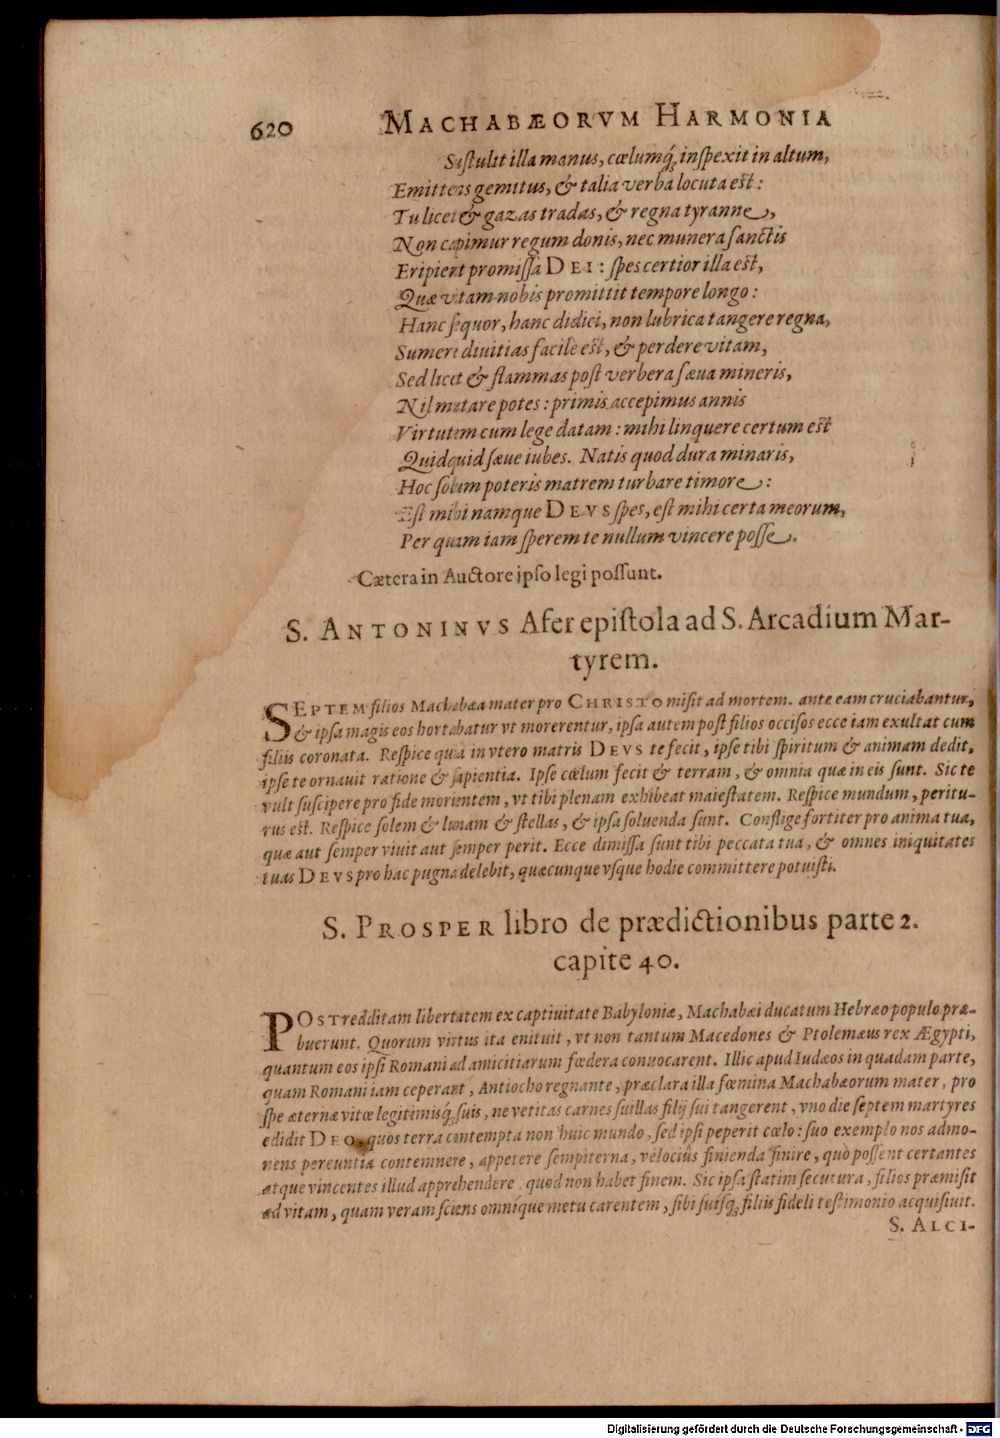 620 MACHABÆORVM HARMONIA
Sustulit illa manus, cœlumq́; inſpexit in altum,
Emittens gemitus, & talia verba locuta eſt:
Tu licet & gazas tradas, & regna tyranne,
Non capimur regum donis, nec munera ſanctis
Eripient promiſſa DEI: ſpes certior illa eſt,
Quæ vitam nobis promittit tempore longo:
Hanc ſequor, hanc didici, non lubrica tangere regna,
Sumere diuitias facile eſt, & perdere vitam,
Sed licet & flammas poſt verbera ſæua mineris,
Nil mutare potes: primis accepimus annis
Virtutem cum lege datam: mihi linquere certum eſt
Quidquid ſæue iubes. Natis quod dura minaris,
Hoc ſolum poteris matrem turbare timore:
Eſt mihi namque DEVS ſpes, eſt mihi certa meorum,
Per quam iam ſperem te nullum vincere poſſe.
Cætera in Auctore ipſo legi poſſunt.
S. ANTONINVS Afer epiſtola ad S. Arcadium Mar-
tyrem.
SEPTEM filios Machabæa mater pro CHRISTO miſit ad mortem. ante eam cruciabantur,
& ipſa magis eos hortabatur vt morerentur, ipſa autem poſt filios occiſos ecce iam exultat cum
filiis coronata. Reſpice quâ in vtero matris DEVS te fecit, ipſe tibi ſpiritum & animam dedit,
ipſe te ornauit ratione & ſapientia. Ipſe cœlum fecit & terram, & omnia quæ in eis ſunt. Sic te
vult ſuſcipere pro fide morientem, vt tibi plenam exhibeat maieſtatem. Reſpice mundum, peritu-
rus eſt. Reſpice ſolem & lunam & ſtellas, & ipſa ſoluenda ſunt. Conflige fortiter pro anima tua,
quæ aut ſemper viuit aut ſemper perit. Ecce dimiſſa ſunt tibi peccata tua, & omnes iniquitates
tuas DEVS pro hac pugna delebit, quæcunque vſque hodie committere potuiſti.
S. PROSPER libro de prædictionibus parte 2.
capite 40.
POST redditam libertatem ex captiuitate Babyloniæ, Machabæi ducatum Hebræo populo præ-
buerunt. Quorum virtus ita enituit, vt non tantum Macedones & Ptolemæus rex Ægypti,
quantum eos ipſi Romani ad amicitiarum fœdera conuocarent. Illic apud Iudæos in quadam parte,
quam Romani iam ceperant, Antiocho regnante, præclara illa fœmina Machabæorum mater, pro
ſpe æternæ vitæ legitimisq́; ſuis, ne vetitas carnes ſuillas filij ſui tangerent, vno die ſeptem martyres
edidit DEO, quos terra contempta non huic mundo, ſed ipſi peperit cœlo: ſuo exemplo nos admo-
nens pereuntia contemnere, appetere ſempiterna, velociùs finienda finire, quò poſſent certantes
atque vincentes illud apprehendere, quod non habet finem. Sic ipſa ſtatim ſecutura, filios præmiſit
ad vitam, quam veram ſciens omníque metu carentem, ſibi ſuiſq́; filiis fideli teſtimonio acquiſiuit.
S. ALCI-
Digitalisierung gefördert durch die Deutsche Forschungsgemeinschaft - DFG